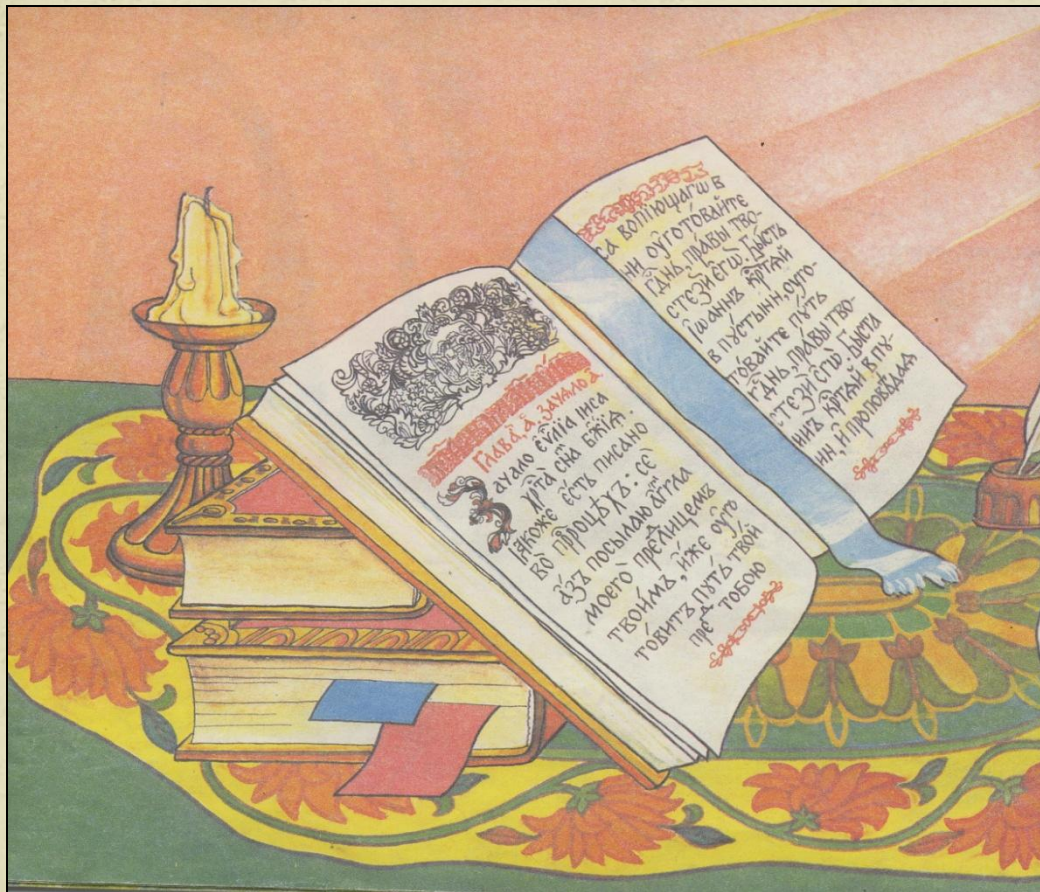 Глава̀, а҃, зачало а҃
Зачало є҆ѵⷢ҇лїа і҆и҃са
хр҇та̀ сн҃а бж҃їѧ.
ꙗ҆́коже є҆́сть писано
во прⷪ҇ро́цѣхъ: сѐ
а҆́зъ посылаю а҆́гг҃ла
моего̀ преⷣлицемъ
твои́мъ, и҆́же ᲂу҆гото
товитъ пꙋ́ть твой
преⷣ тобою
са вопїющагѡ в
ни ᲂу҆гото́вайте
гдⷭ҇нь, пра́вы тво-
стезѝ є҆гѡ̀. Бы́сть
Їѡаннъ крⷭ҇тѧй
в пꙋсты́ни, ᲂуго-
това́йте пꙋ́ть
гдⷭ҇нь, пра́вы тво-
стезѝ Бы́сть
ннъ крⷭ҇тѧй в пꙋ-
ин, и҆ проповѣдаѧ